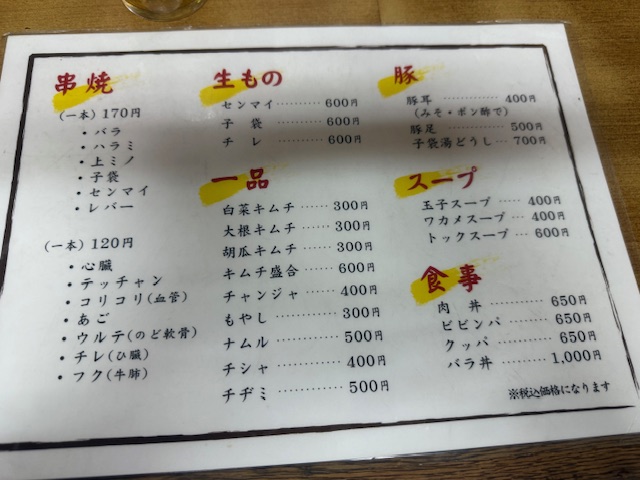 串焼
(一本) 170円
・バラ
・ハラミ
・上ミノ
・子袋
・センマイ
・レバー
(一本) 120円
・心臓
・テッチャン
・コリコリ(血管)
・あご
・ウルテ(のど軟骨)
・チレ(ひ臓)
・フク(牛肺)
生もの
センマイ ………… 600円
子袋 ………… 600円
チレ ………… 600円
一品
白菜キムチ …… 300円
大根キムチ …… 300円
胡瓜キムチ …… 300円
キムチ盛合 …… 600円
チャンジャ ……… 400円
もやし ………… 300円
ナムル ………… 500円
チシャ ………… 400円
チヂミ ………… 500円
豚
豚耳 ………… 400円
(みそ・ポン酢で)
豚足 ………… 500円
子袋湯どうし… 700円
スープ
玉子スープ …… 400円
ワカメスープ … 400円
トックスープ… 600円
食事
肉丼 ………… 650円
ビビンバ ……… 650円
クッパ ………… 650円
バラ丼 ……… 1,000円
※税込価格になります